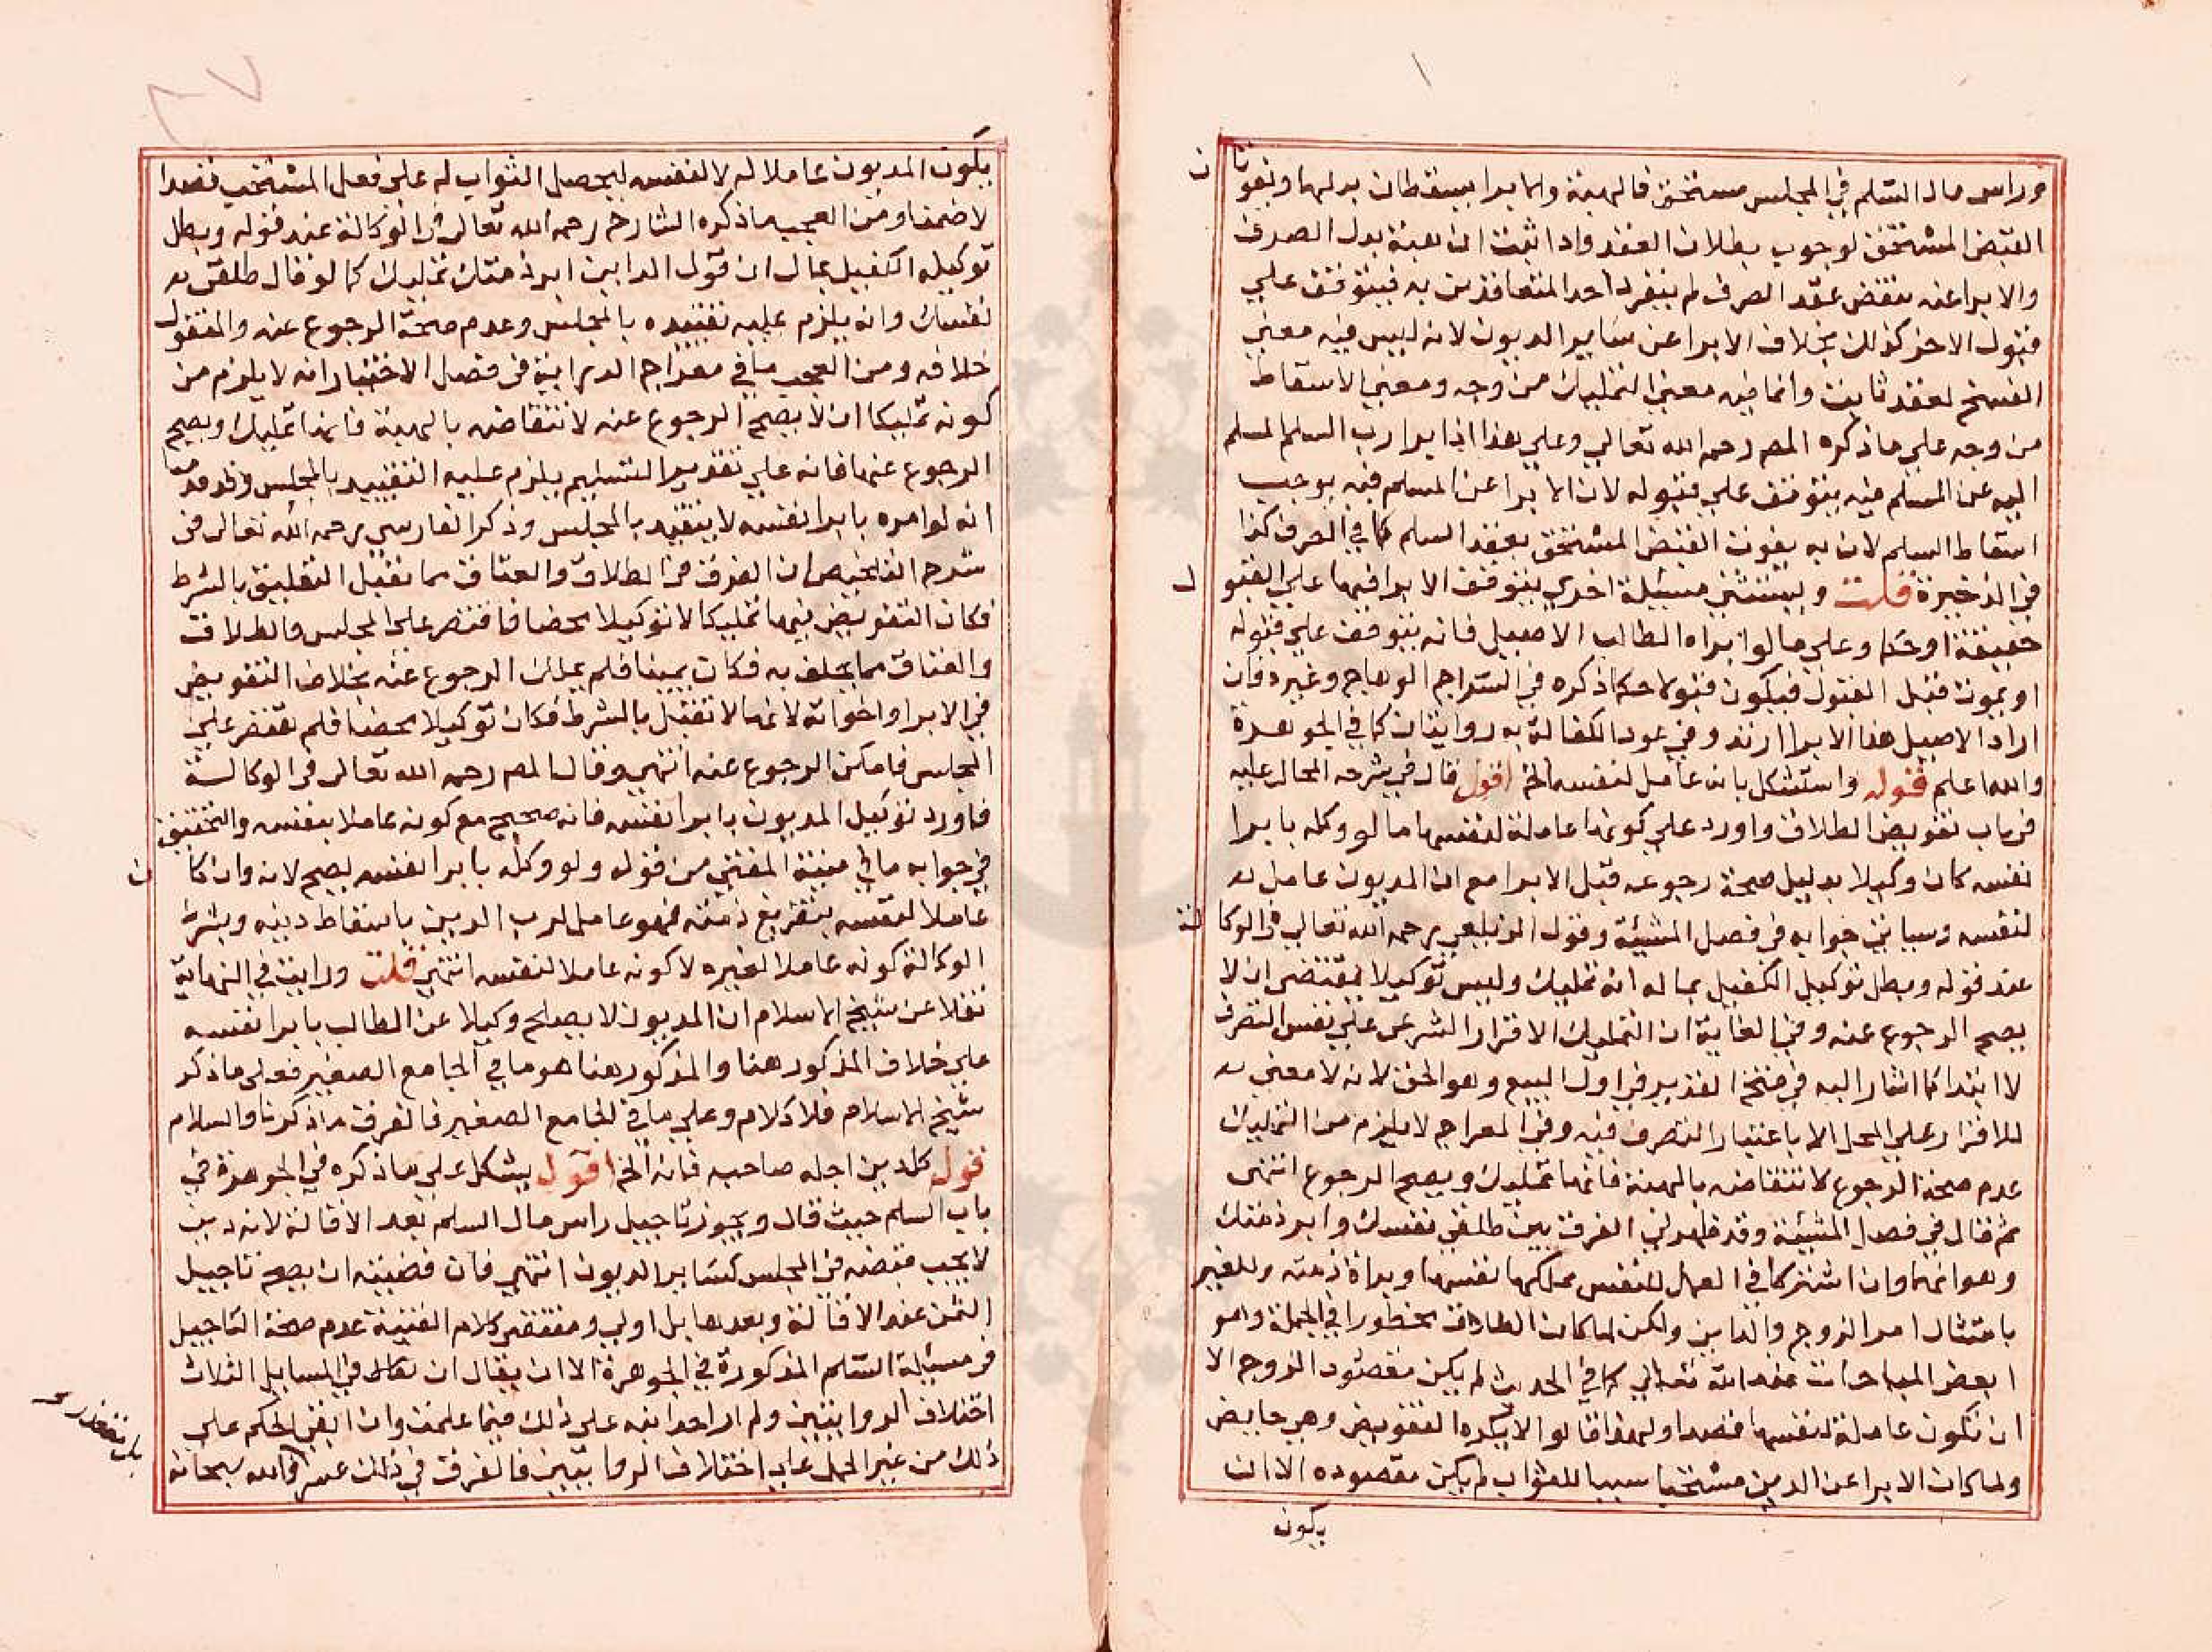 وراس مال السلم في المجلس مستحق فالهبة والابرا يسقطان بدلهما ويفوتان
القبض المستحق لوجوب بطلان العقد واذا ثبت ان هبة بدل الصرف
والابراعنه تنقض عقد الصرف لم ينفرد احد المتعاقدين به فيتوقف علي
قبول الاخر كذلك بخلاف الابرا عن ساير الديون لانه ليس فيه معني
الفسخ لعقد ثابت وانما فيه معني التمليك من وجه ومعني الاسقاط
من وجه علي ما ذكره المص رحمه الله تعالي وعلي هذا اذا ابرا رب السلم المسلم
اليه عن المسلم فيه يتوقف علي قبوله لان الابرا عن المسلم فيه يوجب
اسقاط السلم لان به يفوت القبض المستحق بعقد السلم كما في الصرف كذا
في الذخيرة قلت ويستثني مسئلة اخري يتوقف الابرا فيها علي القبول
حقيقة او حكما وعلي ما لو ابراه الطالب الاصيل فانه يتوقف علي قبوله
او يموت قبل القبول فيكون قبولا حكما ذكره في السراج الوهاج وغيره فان
اراد الاصيل هذا الابرا ارتد وفي عود الكفالة به روايتان كما في الجوهرة
والله اعلم قوله واستشكل بانه عامل لنفسه الخ اقول قال في شرحه المحال عليه
في باب تفويض الطلاق واورد علي كونها عاملة لنفسها ما لو وكله بابرا
نفسه كان وكيلا بدليل صحة رجوعه قبل الابرا مع ان المديون عامل
لنفسه وسياتي جوابه في فصل المشيئة وقول الزيلعي رحمه الله تعالي في الوكالة
عند قوله وبطل توكيل الكفيل بمال انه تمليك وليس توكيلا يقتضي ان لا
يصح الرجوع عنه وفي الغاية ان التمليك الاقرار الشرعي علي نفس التصرف
لا ابتدا كما اشار اليه في فتح القدير في اول البيع وهو الحق لانه لا معني
للاقرار علي المحل الا باعتبار التصرف فيه وفي المعراج لا يلزم من التمليك
عدم صحة الرجوع لانتقاضه بالهبة فانها تمليك ويصح الرجوع انتهي
ثم قال في فصل المشيئة وقد ظهر لي الفرق بين طلقي نفسك وابر ذمتك
وهو انهما وان اشتركا في العمل للنفس بملكها نفسها وبراة ذمته وللغير
بامتثال امر الزوج والداين ولكن لما كان الطلاق محظورا في الجملة وهو
ابغض المباحات عند الله تعالي كما في الحديث لم يكن مقصود الزوج الا
ان تكون عاملة لنفسها قصدا ولهذا قالوا لا يكره التفويض وهي حايض
ولما كان الابرا عن الدين مستحبا سببا للثواب لم يكن مقصوده الا ان
يكون
يكون المديون عاملا له لا لنفسه ليحصل الثواب له علي فعل المستحب قصدا
لا ضمنا ومن العجب ما ذكره الشارح رحمه الله تعالي في الوكالة عند قوله وبطل
توكيله الكفيل بمال ان قول الداين ابر ذمتك تمليك كما لو قال طلقي
نفسك وانه يلزم عليه تقييده بالمجلس وعدم صحة الرجوع عنه والمنقول
خلافه ومن العجب ما في معراج الدراية في فصل الاختيار انه لا يلزم من
كونه تمليكا ان لا يصح الرجوع عنه لانتقاضه بالهبة فانها تمليك ويصح
الرجوع عنها فانه علي تقدير التسليم يلزم عليه التقييد بالمجلس وقد قدمنا
انه لو امره بابرا نفسه لا يتقيد بالمجلس وذكر الفارسي رحمه الله تعالي في
شرح التلخيص ان الفرق في الطلاق والعتاق مما تقبل التعليق بالشرط
فكان التفويض فيهما تمليكا لا توكيلا محضا فاقتصر علي المجلس والطلاق
والعتاق مما يحلف به فكان يمينا فلم يملك الرجوع عنه بخلاف التفويض
في الابرا واخواته لانها لا تقبل بالشرط فكان توكيلا محضا فلم يقتصر علي
المجلس فامكن الرجوع عنه انتهي وقال المص رحمه الله تعالي في الوكالة
فاورد توكيل المديون بابرا نفسه فانه صحيح مع كونه عاملا بنفسه والتحقيق
في جوابه ما في منية المفتي من قوله ولو وكله بابرا نفسه يصح لانه وان كان
عاملا لنفسه بتفريغ ذمته فهو عامل لرب الدين باسقاط دينه وشرط
الوكالة كونه عاملا لغيره لا كونه عاملا لنفسه انتهي قلت ورايت في النهاية
نقلا عن شيخ الاسلام ان المديون لا يصلح وكيلا عن الطالب بابرا نفسه
علي خلاف المذكور هنا والمذكور هنا هو ما في الجامع الصغير فعلي ما ذكر
شيخ الاسلام فلا كلام وعلي ما في الجامع الصغير فالفرق ما ذكرنا والسلام
قول كل دين اجله صاحبه فانه الخ اقول يشكل علي ما ذكره في الجوهرة في
باب السلم حيث قال ويجوز تاجيل راس مال السلم بعد الاقالة لانه دين
لا يجب قبضه في المجلس كساير الديون انتهي فان قضيته ان يصح تاجيل
الثمن عند الاقالة وبعدها بل اولي ومقتضي كلام القنية عدم صحة التاجيل
في مسئلة السلم المذكورة في الجوهرة الا ان يقال ان في المسايل الثلاث
اختلاف الروايتين ولم ار احدا نبه علي ذلك فيما علمت وان ابقي الحكم علي
ذلك من غير الحمل علي اختلاف الروايتين فالفرق في ذلك عسر والله سبحانه